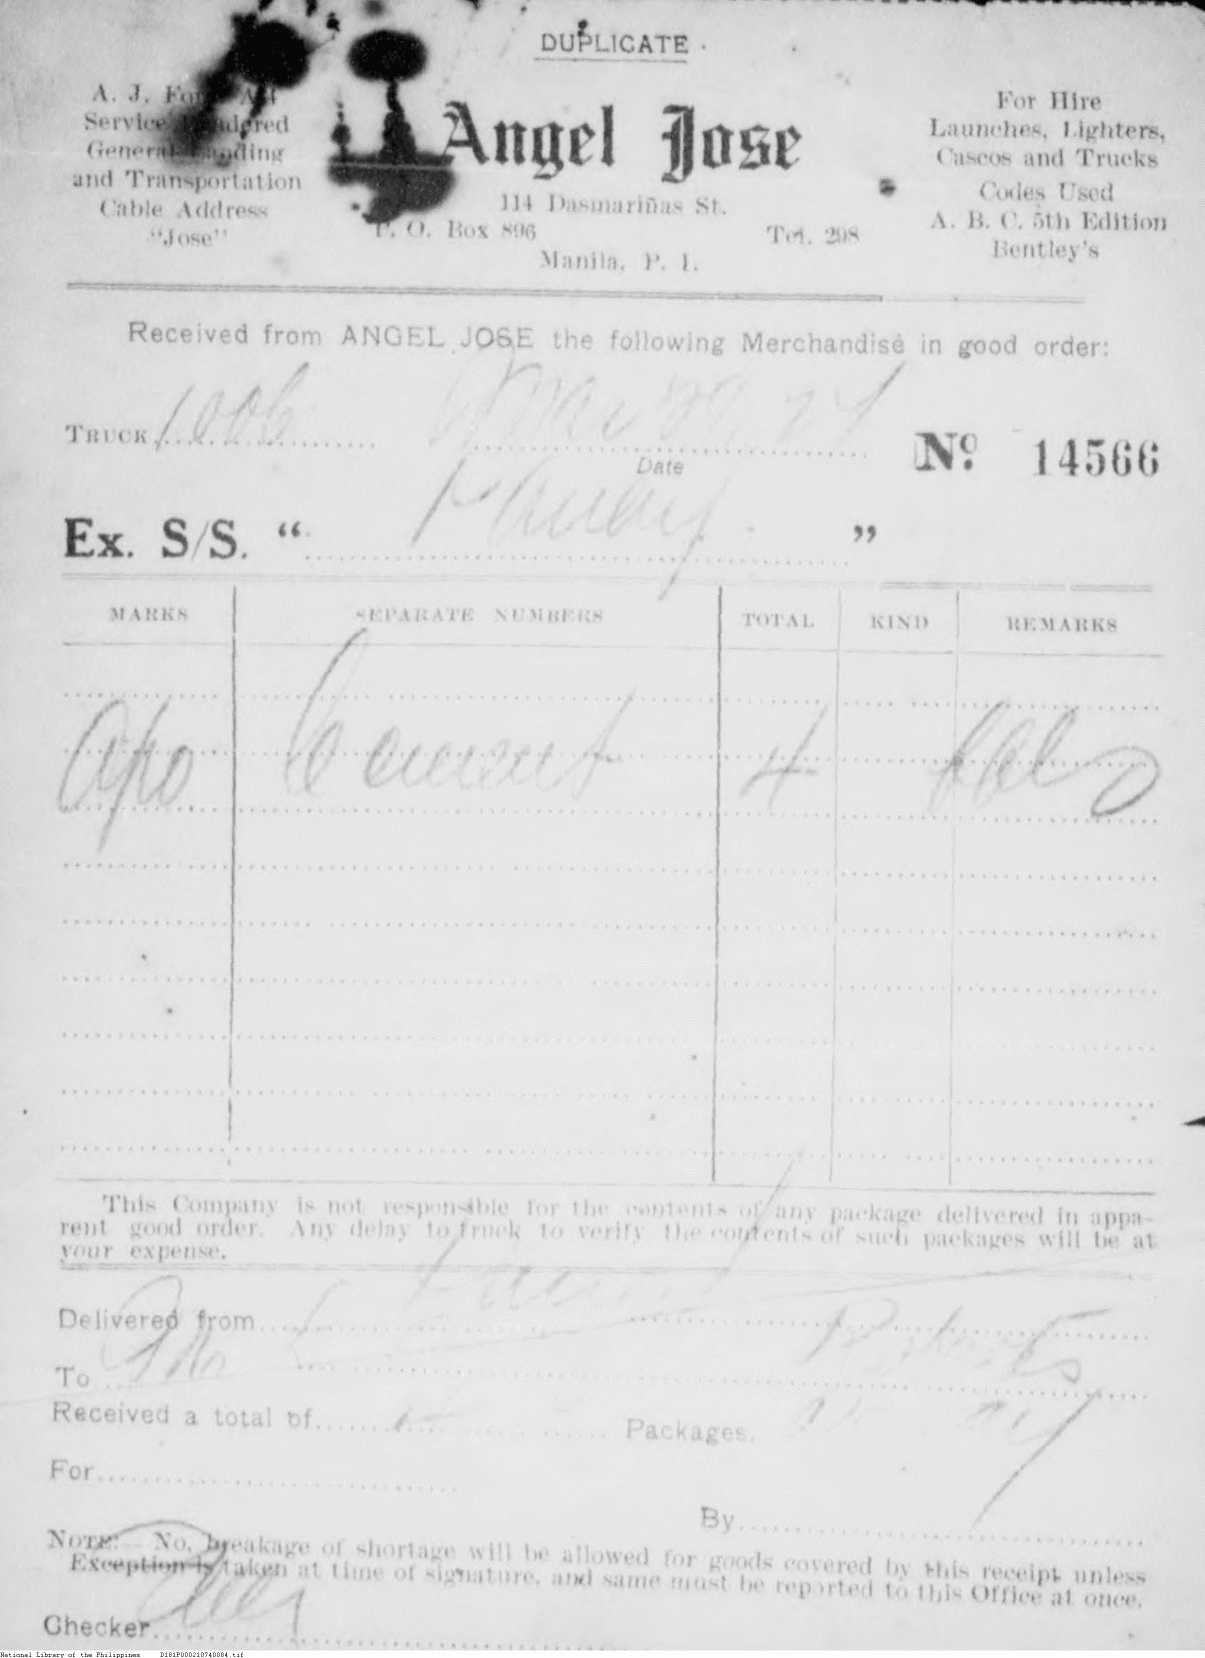 DUPLICATE
A. J. Form A11
Service Rendered
General Landing
and Transportation
Cable Address
"Jose"
Angel Jose
114 Dasmariñas St.
P. O. Box 896 Tel. 298
Manila, P. I.
For Hire
Launches, Lighters,
Cascos and Trucks
Codes Used
A. B. C. 5th Edition
Bentley's
Received from ANGEL JOSE the following Merchandise in good order:
TRUCK 1006 Mar 22, 24
Date
No. 14566
Ex. S/S. " "
MARKS SEPARATE NUMBERS TOTAL KIND REMARKS
Apo Cement 4 bbls
This Company is not responsible for the contents of any package delivered in appa-
rent good order. Any delay to truck to verify the contents of such packages will be at
your expense.
Delivered from
To
Received a total of Packages.
For
By
NOTE: No, breakage of shortage will be allowed for goods covered by this receipt unless
Exception is taken at time of signature, and same must be reported to this Office at once.
Checker
National Library of the Philippines D181P000210740084.tif